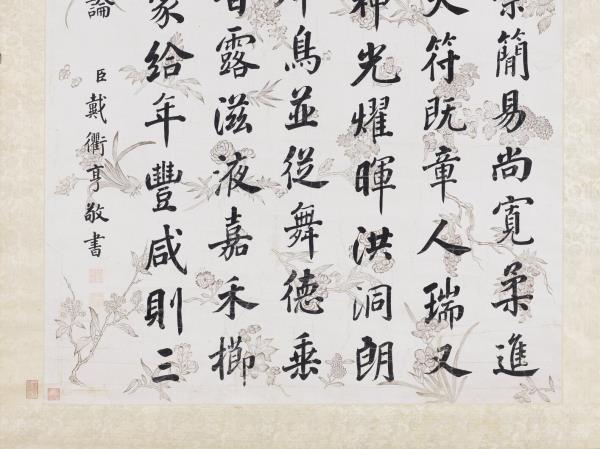 簡易尚寬柔進
天符既章人瑞又
神光燿暉洪洞朗
鳥並從舞德垂
甘露滋液嘉禾櫛
家給年豐咸則三
論
臣戴衢亨敬書